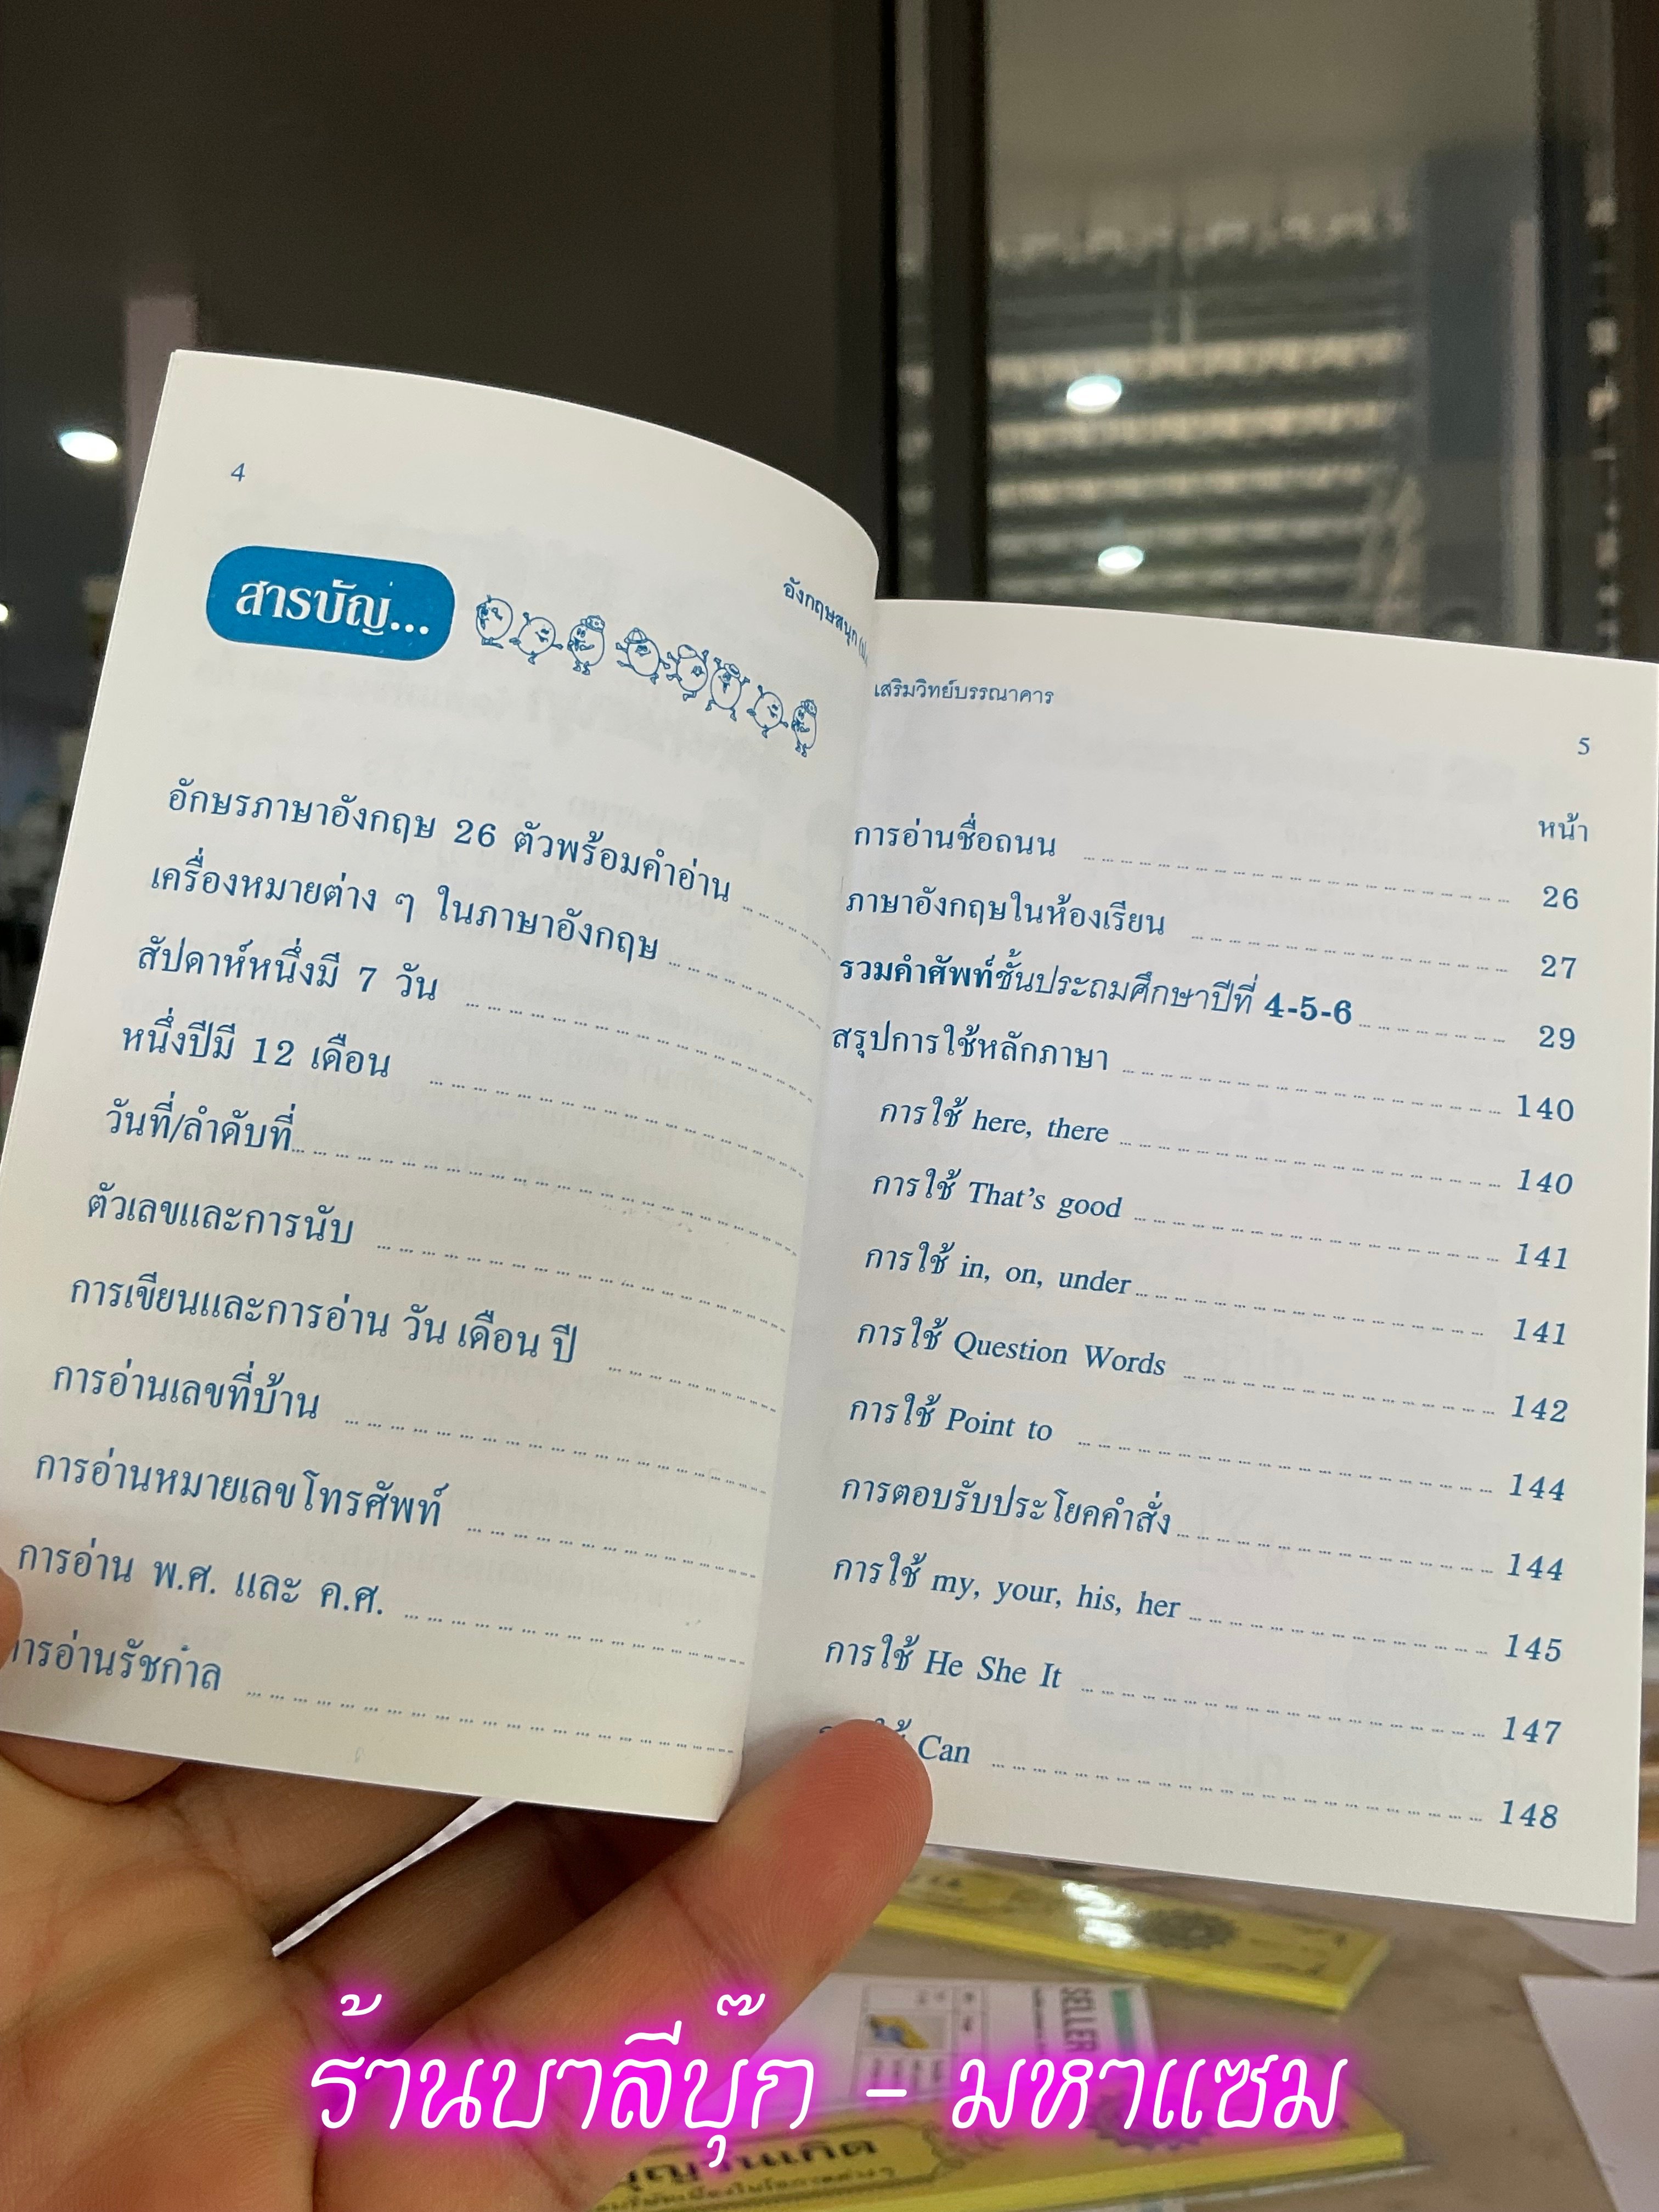 4
อังกฤษสนุก
สารบัญ...
อักษรภาษาอังกฤษ 26 ตัวพร้อมคำอ่าน
เครื่องหมายต่าง ๆ ในภาษาอังกฤษ
สัปดาห์หนึ่งมี 7 วัน
หนึ่งปีมี 12 เดือน
วันที่/ลำดับที่
ตัวเลขและการนับ
การเขียนและการอ่าน วัน เดือน ปี
การอ่านเลขที่บ้าน
การอ่านหมายเลขโทรศัพท์
การอ่าน พ.ศ. และ ค.ศ.
การอ่านรัชกาล
เสริมวิทย์บรรณาคาร
5
หน้า
การอ่านชื่อถนน 26
ภาษาอังกฤษในห้องเรียน 27
รวมคำศัพท์ชั้นประถมศึกษาปีที่ 4-5-6 29
สรุปการใช้หลักภาษา 140
การใช้ here, there 140
การใช้ That's good 141
การใช้ in, on, under 141
การใช้ Question Words 142
การใช้ Point to 144
การตอบรับประโยคคำสั่ง 144
การใช้ my, your, his, her 145
การใช้ He She It 147
Can 148
SELLER
ร้านบาลีบุ๊ก - มหาแซม